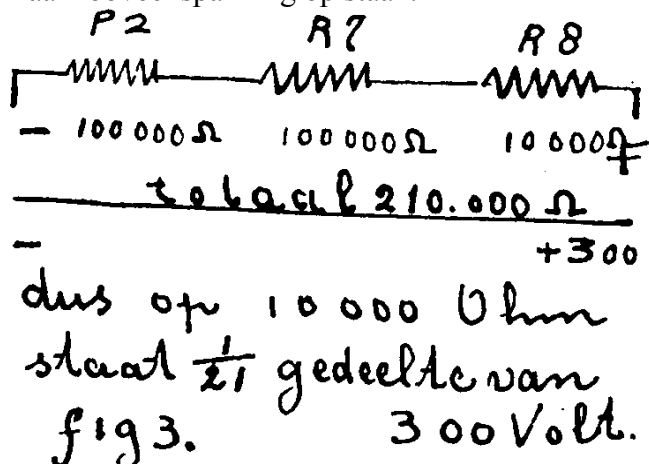 P2 R7 R8
- 100 000 Ω 100 000 Ω 10 000 Ω +
totaal 210.000 Ω
- +300
dus op 10 000 Ohm
staat 1/21 gedeelte van
fig 3. 300 Volt.